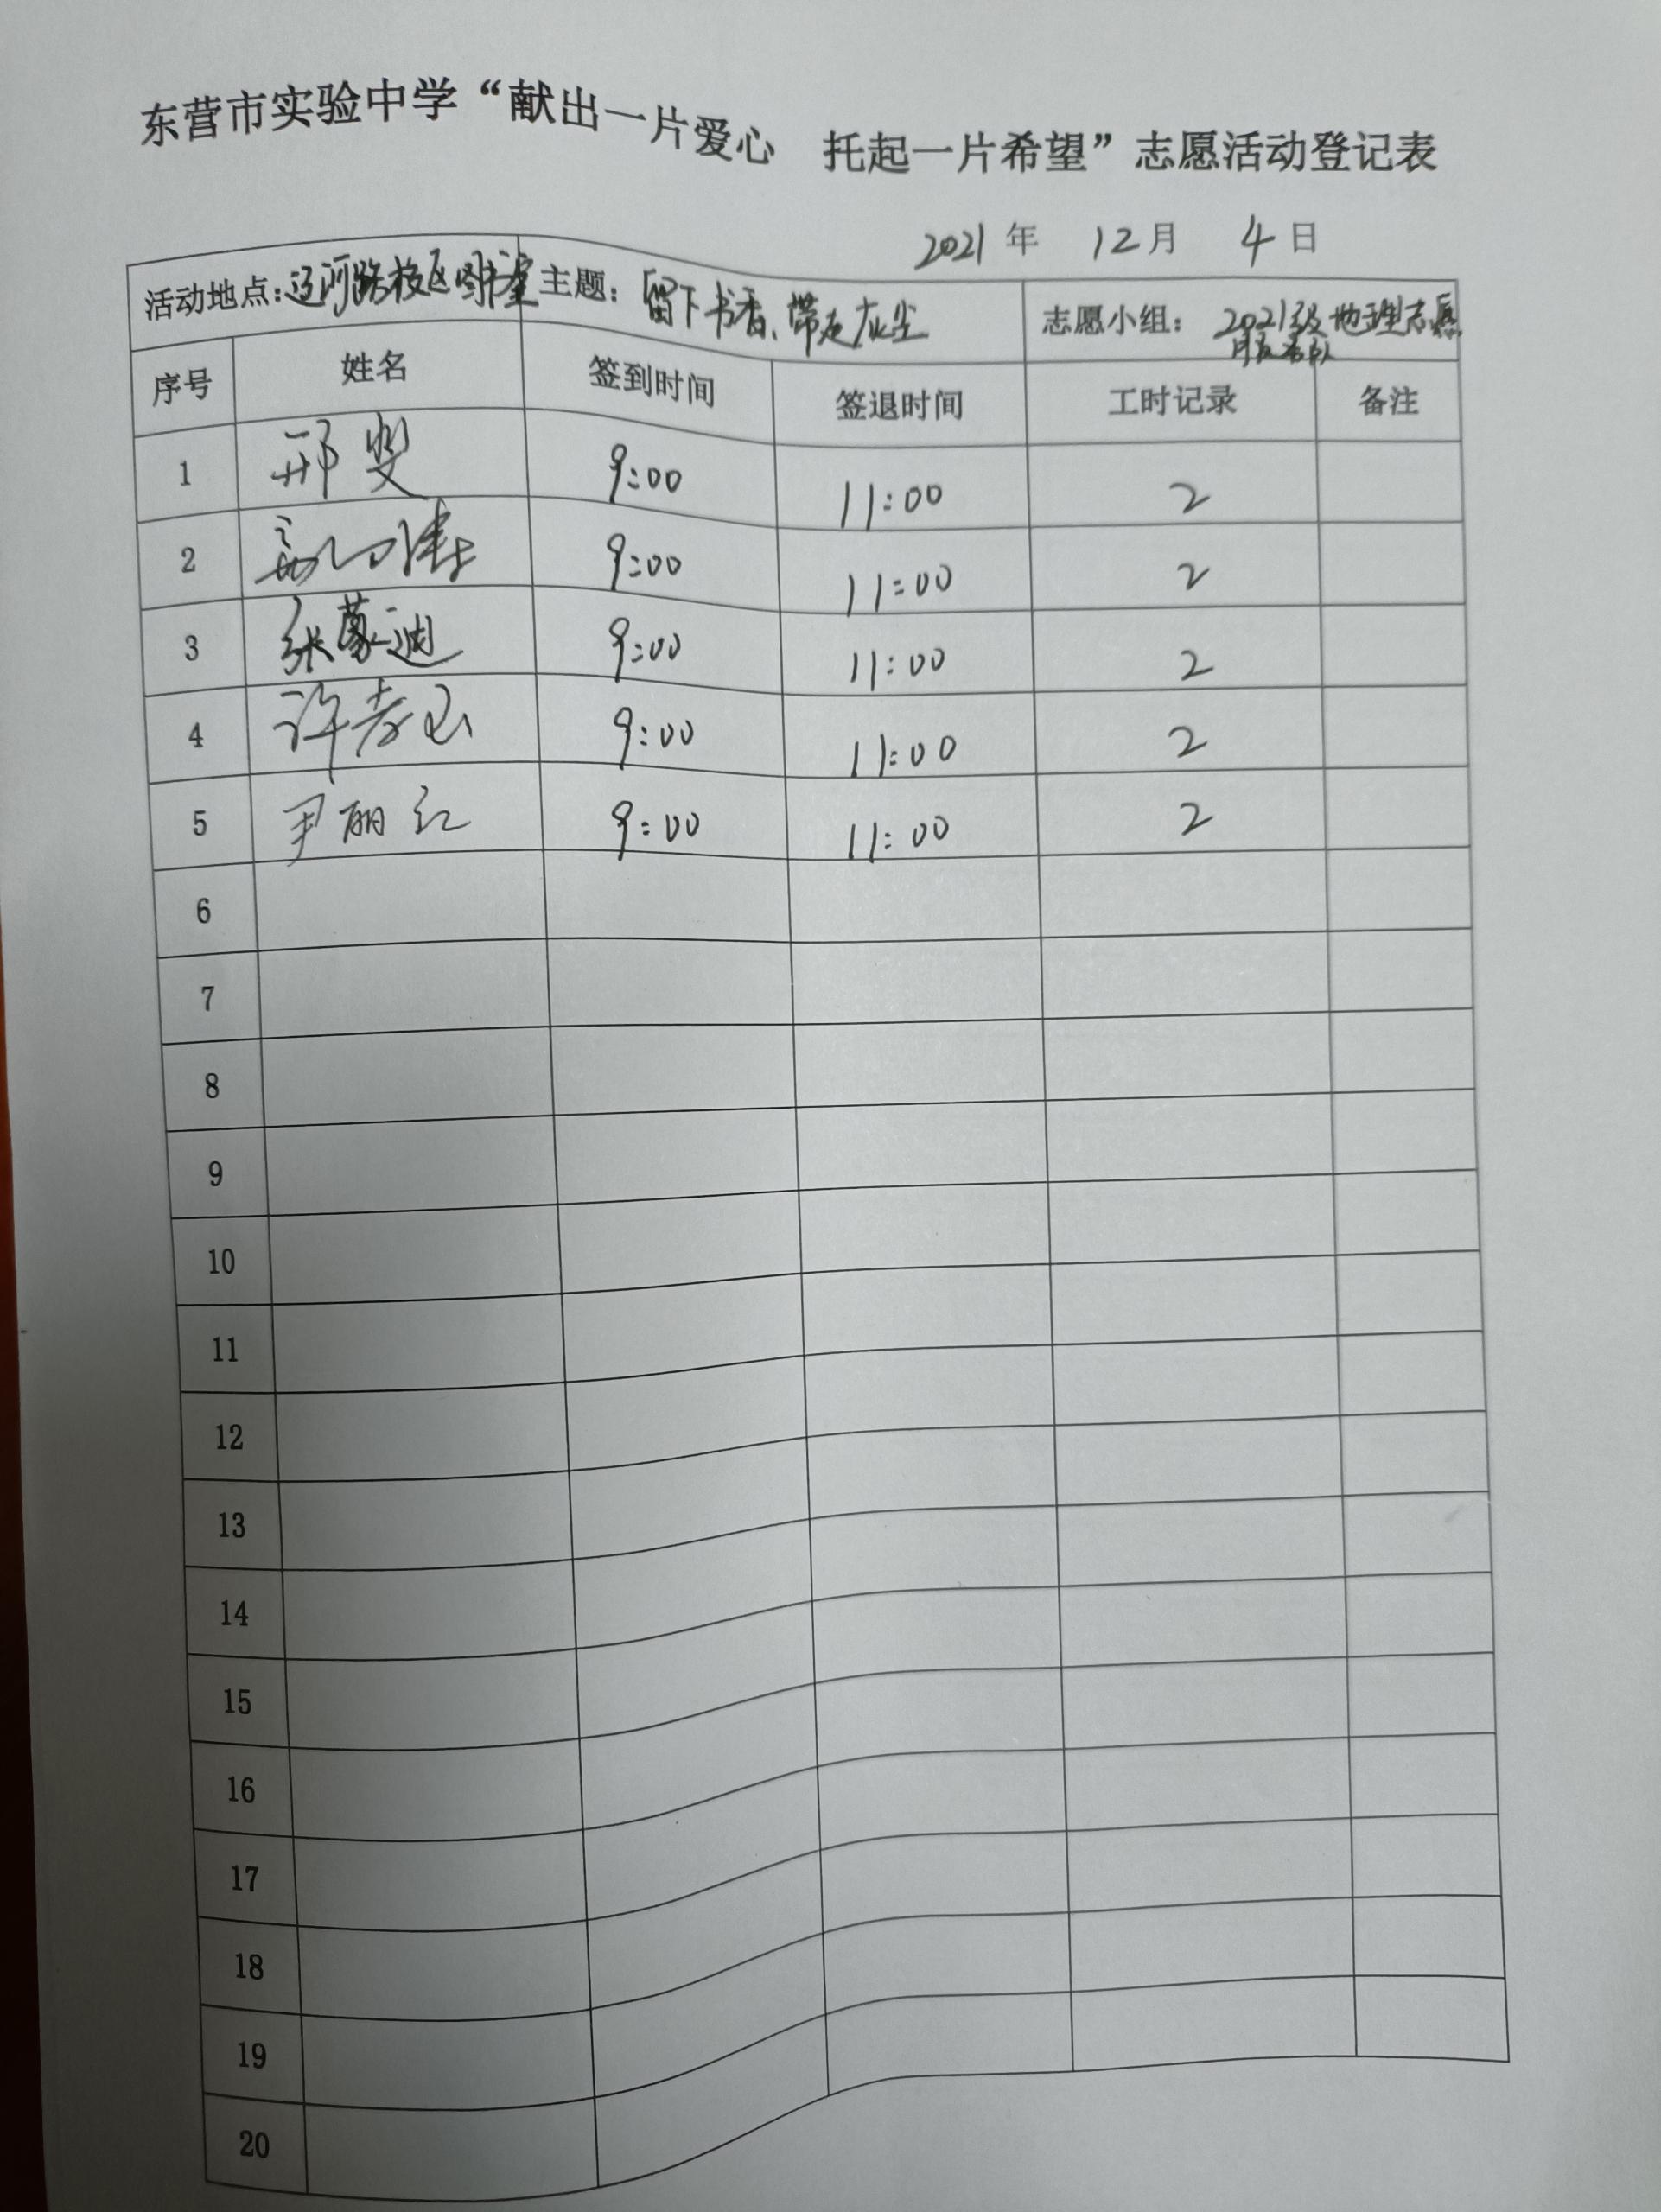 东营市实验中学“献出一片爱心 托起一片希望”志愿活动登记表
2021 年 12 月 4 日
活动地点:辽河路校区图书室 主题: 留下书香、带走灰尘 志愿小组: 2021级地理志愿
服务队
序号 姓名 签到时间 签退时间 工时记录 备注
1 邢斐 9:00 11:00 2
2 9:00 11:00 2
3 张蒙迪 9:00 11:00 2
4 许孝 9:00 11:00 2
5 尹丽红 9:00 11:00 2
6
7
8
9
10
11
12
13
14
15
16
17
18
19
20